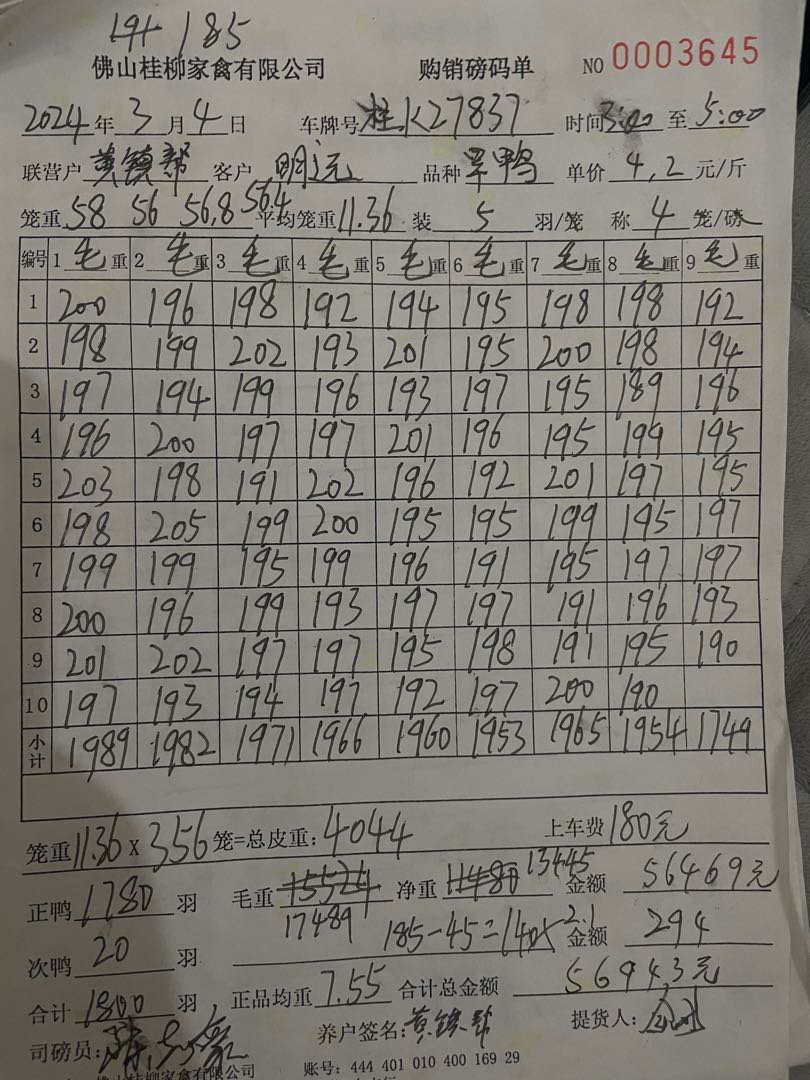 185
佛山桂柳家禽有限公司 购销磅码单 NO 0003645
2024年3月4日 车牌号 桂K27837 时间3:00至5:00
联营户 黄镇帮 客户 明远 品种 旱鸭 单价 4,2 元/斤
笼重 58 56 56,8 56.4 平均笼重 11.36 装 5 羽/笼 称 4 笼/磅
编号 1 毛重 2 毛重 3 毛重 4 毛重 5 毛重 6 毛重 7 毛重 8 毛重 9 毛重
1 200 196 198 192 194 195 198 198 192
2 198 199 202 193 201 195 200 198 194
3 197 194 199 196 193 197 195 189 196
4 196 200 197 197 201 196 195 199 195
5 203 198 191 202 196 192 201 197 195
6 198 205 199 200 195 195 199 195 197
7 199 199 195 199 196 191 195 197 197
8 200 196 199 193 197 197 191 196 193
9 201 202 197 197 195 198 191 195 190
10 197 193 194 197 192 197 200 190
小计 1989 1982 1971 1966 1960 1953 1965 1954 1749
笼重 11.36 x 356 笼=总皮重: 4044 上车费 180元
正鸭 1780 羽 毛重 15524 净重 11480 13445 金额 56469元
17489 185-45=140x2.1 金额 294
次鸭 20 羽
合计 1800 羽 正品均重 7.55 合计总金额 56943元
司磅员: 养户签名: 黄镇帮 提货人:
佛山桂柳家禽有限公司 账号: 444 401 010 400 169 29